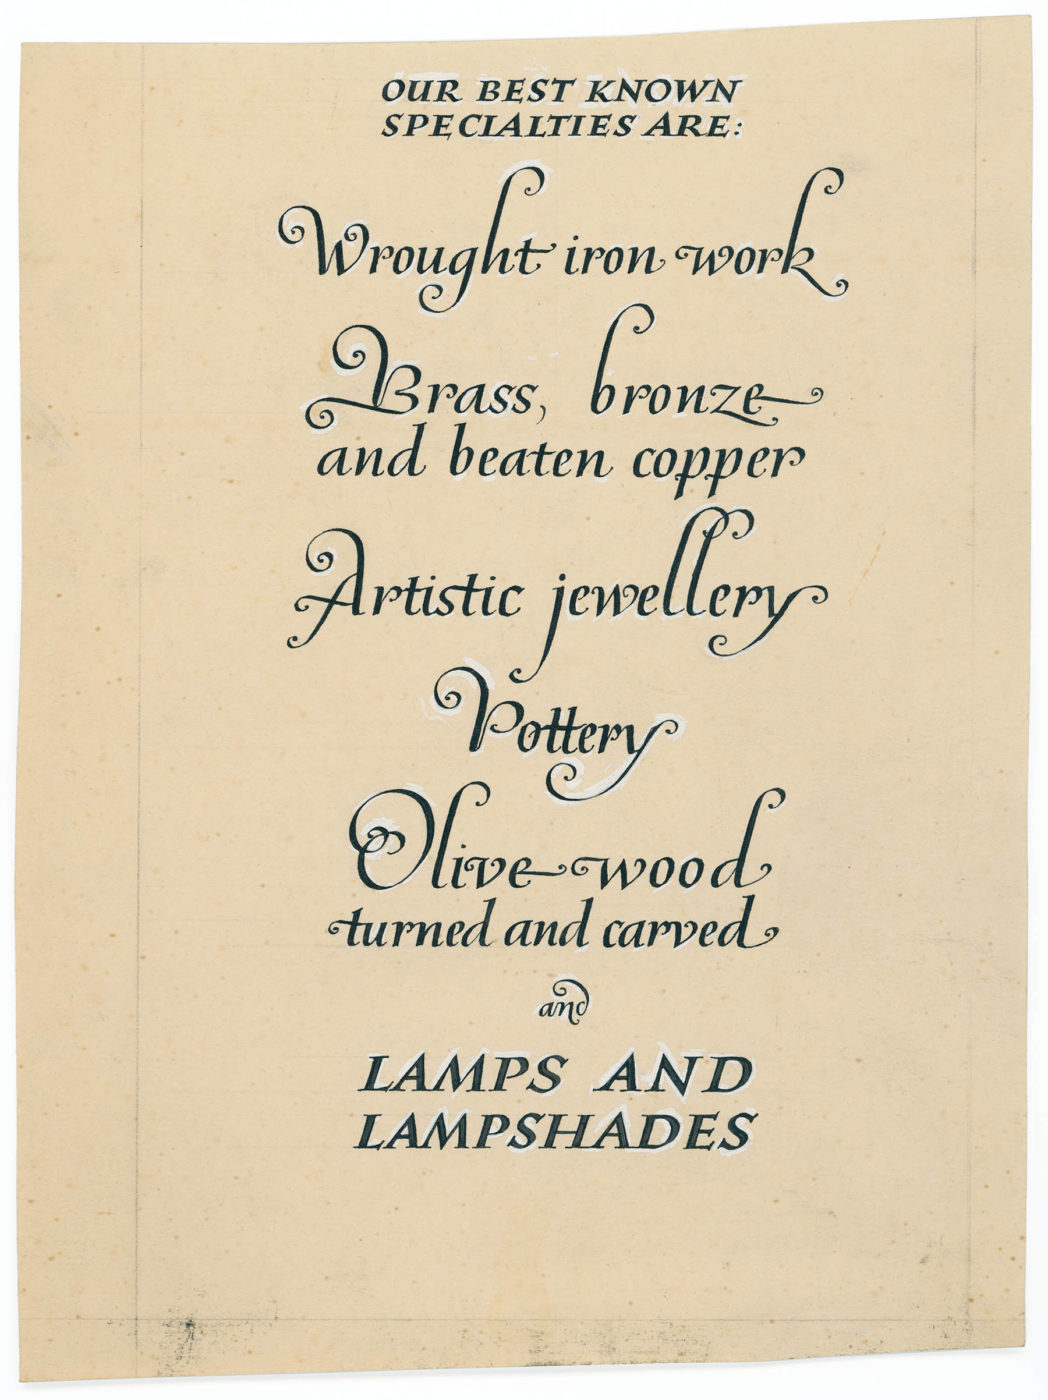 OUR BEST KNOWN
SPECIALTIES ARE:
Wrought iron work
Brass, bronze
and beaten copper
Artistic jewellery
Pottery
Olive wood
turned and carved
and
LAMPS AND
LAMPSHADES